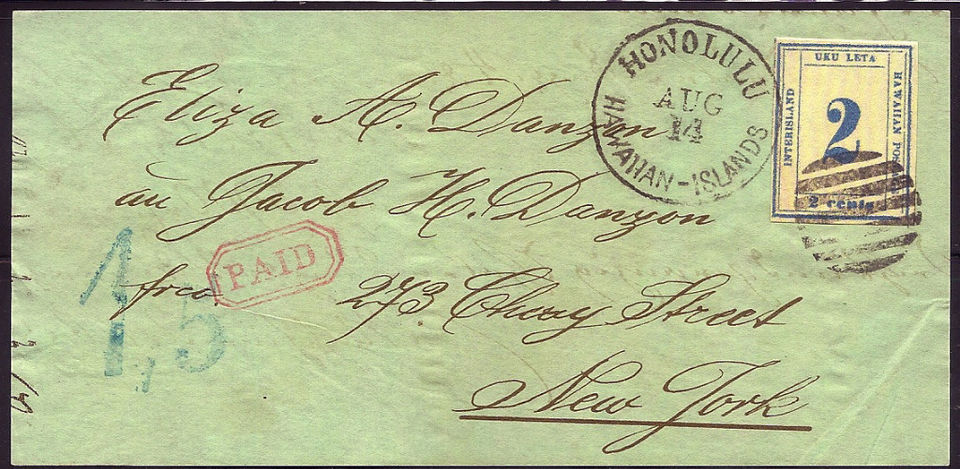 HONOLULU
AUG
14
HAWAIIAN-ISLANDS
UKU LETA
INTERISLAND
HAWAIIAN POS
2
2 cents
Eliza A. Danzon
au Jacob H. Danzon
PAID
free 273 Street
1,5
New York